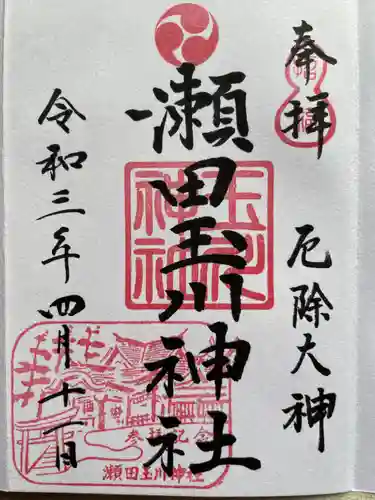 奉拝
厄除大神
瀬田玉川神社
令和三年四月十一日
玉川神社
参拝記念
瀬田玉川神社